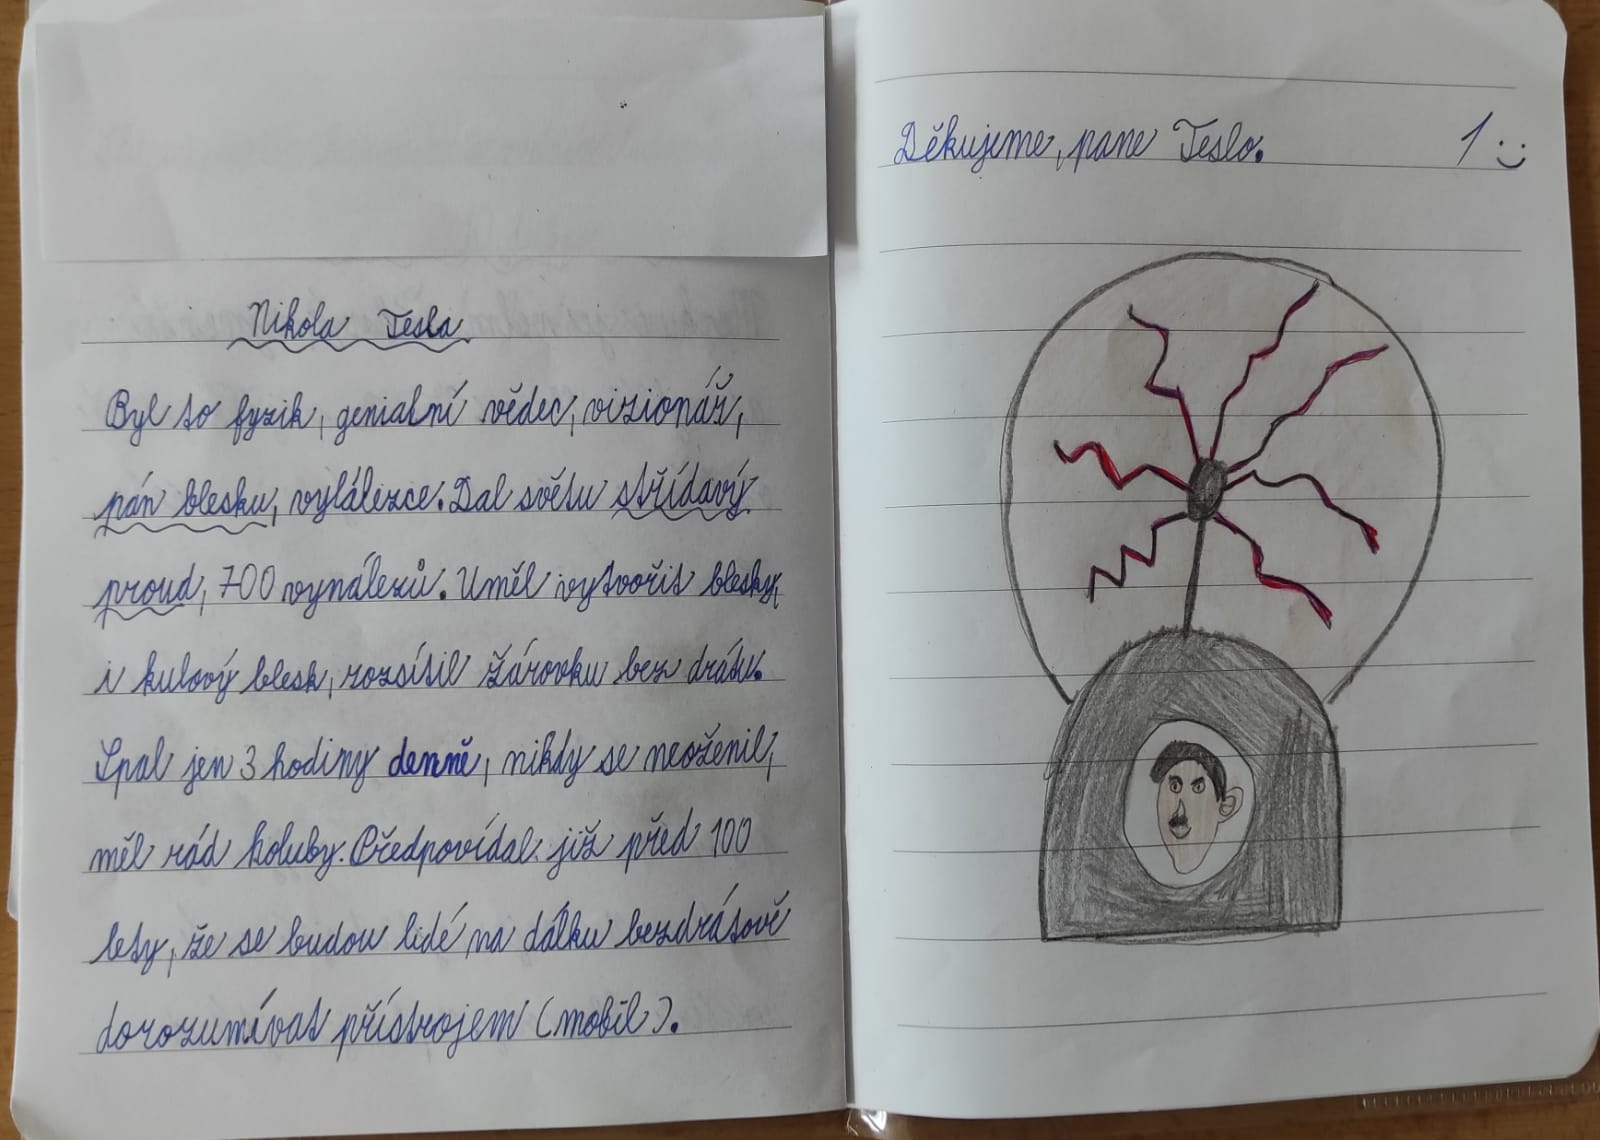 Nikola Tesla
Byl to fyzik, genialní vědec, vizionář,
pán blesku, vylálezce. Dal světu střídavý
proud, 700 vynálezů. Uměl vytvořit blesky,
i kulový blesk, rozsítil žárovku bez drátu.
Spal jen 3 hodiny denně, nikdy se neoženil,
měl rád holuby. Předpovídal již před 100
lety, že se budou lidé na dálku bezdrátově
dorozumívat přístrojem (mobil).
Děkujeme, pane Teslo. 1